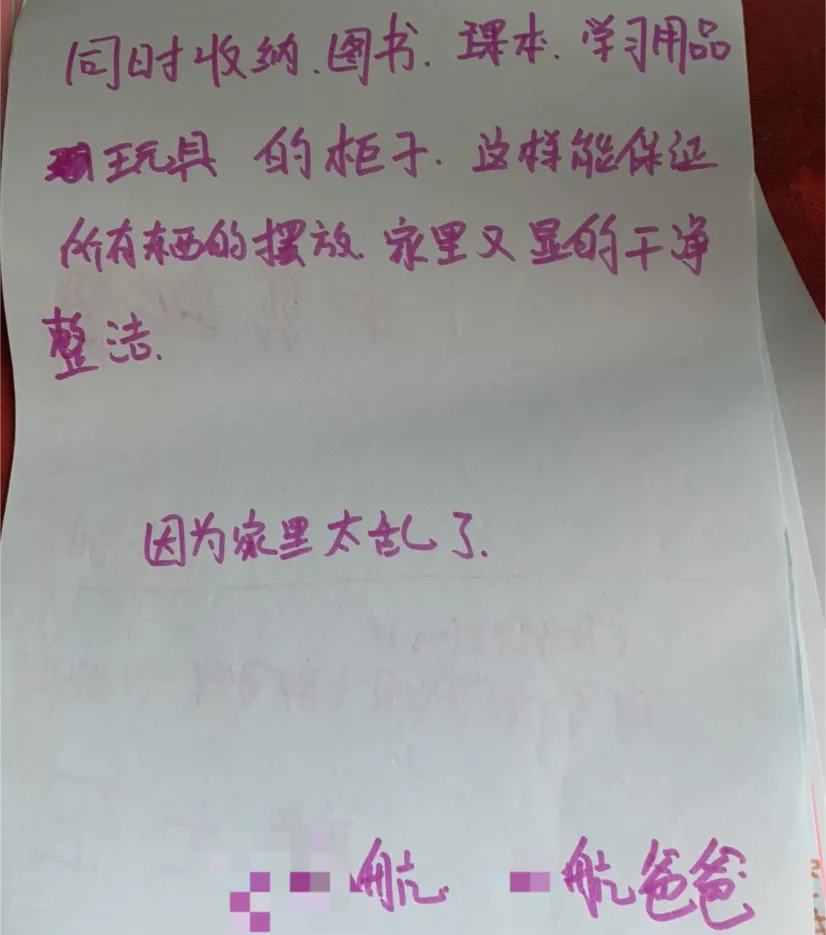 同时收纳、图书、课本、学习用品
玩具 的柜子、这样能保证
所有东西的摆放、家里又显的干净
整洁、
因为家里太乱了、
航 航爸爸